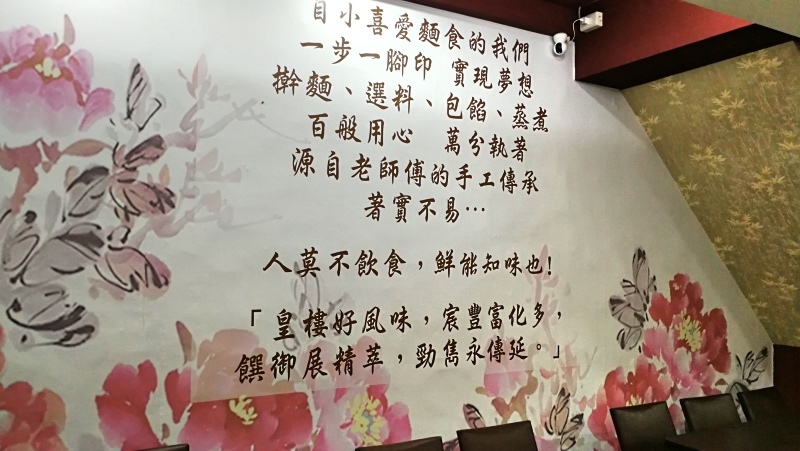 自小喜愛麵食的我們
一步一腳印 實現夢想
擀麵、選料、包餡、蒸煮
百般用心 萬分執著
源自老師傅的手工傳承
著實不易…
人莫不飲食，鮮能知味也!
「皇樓好風味，宸豐富化多，
饌御展精萃，勁雋永傳延。」